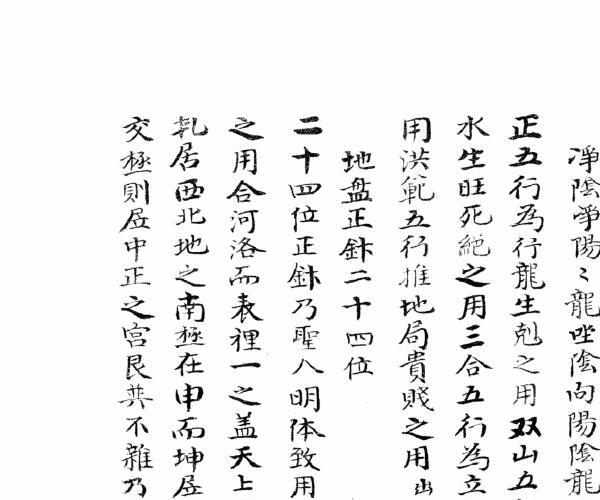 淨陰淨陽〻龍坐陰向陽陰龍
正五行為行龍生剋之用双山五
水生旺死絕之用三合五行為立
用洪範五行推地局貴賤之用出
地盘正針二十四位
二十四位正針乃聖人明体致用
之用合河洛而表裡一之盖天上
乹居西北地之南極在申而坤居
交極則居中正之宮艮共不雜乃